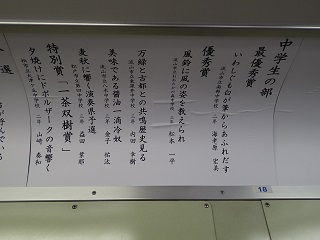 中学生の部
最優秀賞
いわしぐも白が筆からあふれだす
二年 海老原 宏美
優秀賞
風鈴に風の姿を教えられ
三年 松本 一平
万緑と古都との共鳴歴史見る
二年 内田 幸樹
美味である醤油一滴冷奴
二年 金子 祐太
麦秋に響く演奏県予選
三年 益田 葉那
特別賞「一茶双樹賞」
夕焼けにドボルザークの音響く
二年 山崎 泰和
18